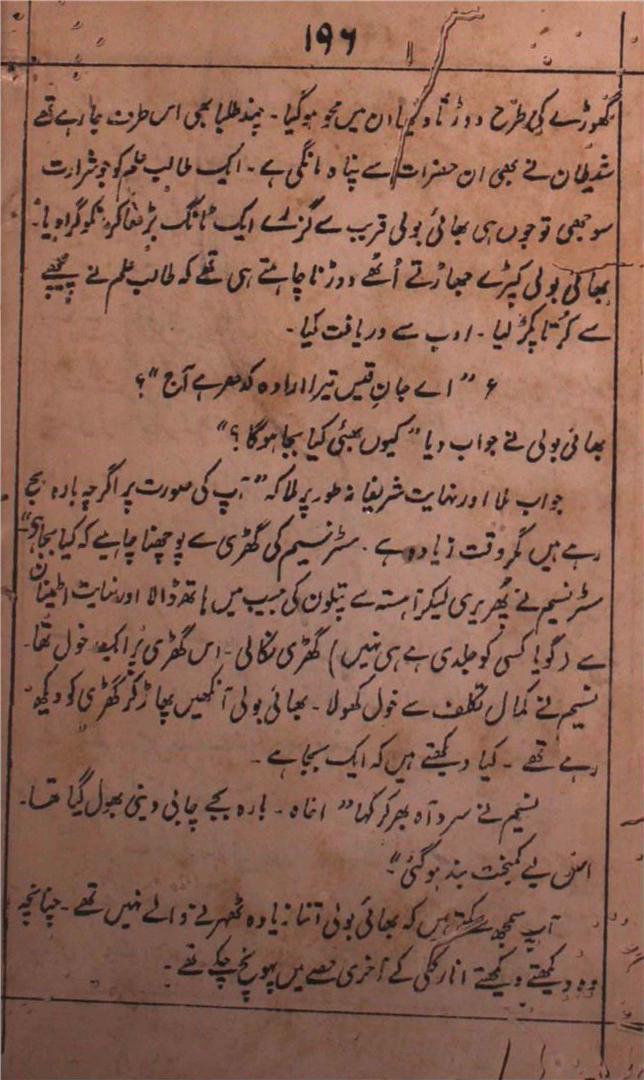 ۱۹۶
گھوڑے کی طرح دوڑتا دکھائی میں محو ہو گیا۔ چند طلبا بھی اس طرف جا رہے تھے
شیطان نے بھی ان حضرات سے پناہ مانگی ہے۔ ایک طالب علم کو جو شرارت
سوجھی تو جوں ہی بھائی بولی قریب سے گزرے ایک ٹانگ بڑھا کر انکو گرا دیا۔
بھائی بولی کپڑے جھاڑتے اُٹھے دوڑنا چاہتے ہی تھے کہ طالب علم نے پیچھے
سے کُرتا پکڑ لیا۔ ادب سے دریافت کیا۔
ع "اے جانِ قیس تیرا ارادہ کدھر ہے آج"؟
بھائی بولی نے جواب دیا "کیوں بھئی کیا بجا ہوگا؟"
جواب ملا اور نہایت شریفانہ طور پر ملا کہ "آپ کی صورت پر اگرچہ بارہ بج
رہے ہیں مگر وقت زیادہ ہے۔ مسٹر نسیم کی گھڑی سے پوچھنا چاہیے کہ کیا بجا ہے"
مسٹر نسیم نے پھریری لیکر آہستہ سے پتلون کی جیب میں ہاتھ ڈالا اور نہایت اطمینان
سے (گویا کسی کو جلدی ہے ہی نہیں) گھڑی نکالی۔ اس گھڑی پر ایک خول تھا۔
نسیم نے کمال تکلف سے خول کھولا۔ بھائی بولی آنکھیں پھاڑ کر گھڑی کو دیکھ
رہے تھے۔ کیا دیکھتے ہیں کہ ایک بجا ہے۔
نسیم نے سرد آہ بھر کر کہا "اخاہ۔ بارہ بجے چابی دینی بھول گیا تھا۔
اس لیے کمبخت بند ہو گئی"۔
آپ سمجھ سکتے ہیں کہ بھائی بولی اتنا زیادہ ٹھہرنے والے نہیں تھے۔ چنانچہ
وہ دیکھتے دیکھتے انارکلی کے آخری حصے میں پہونچ چکے تھے۔